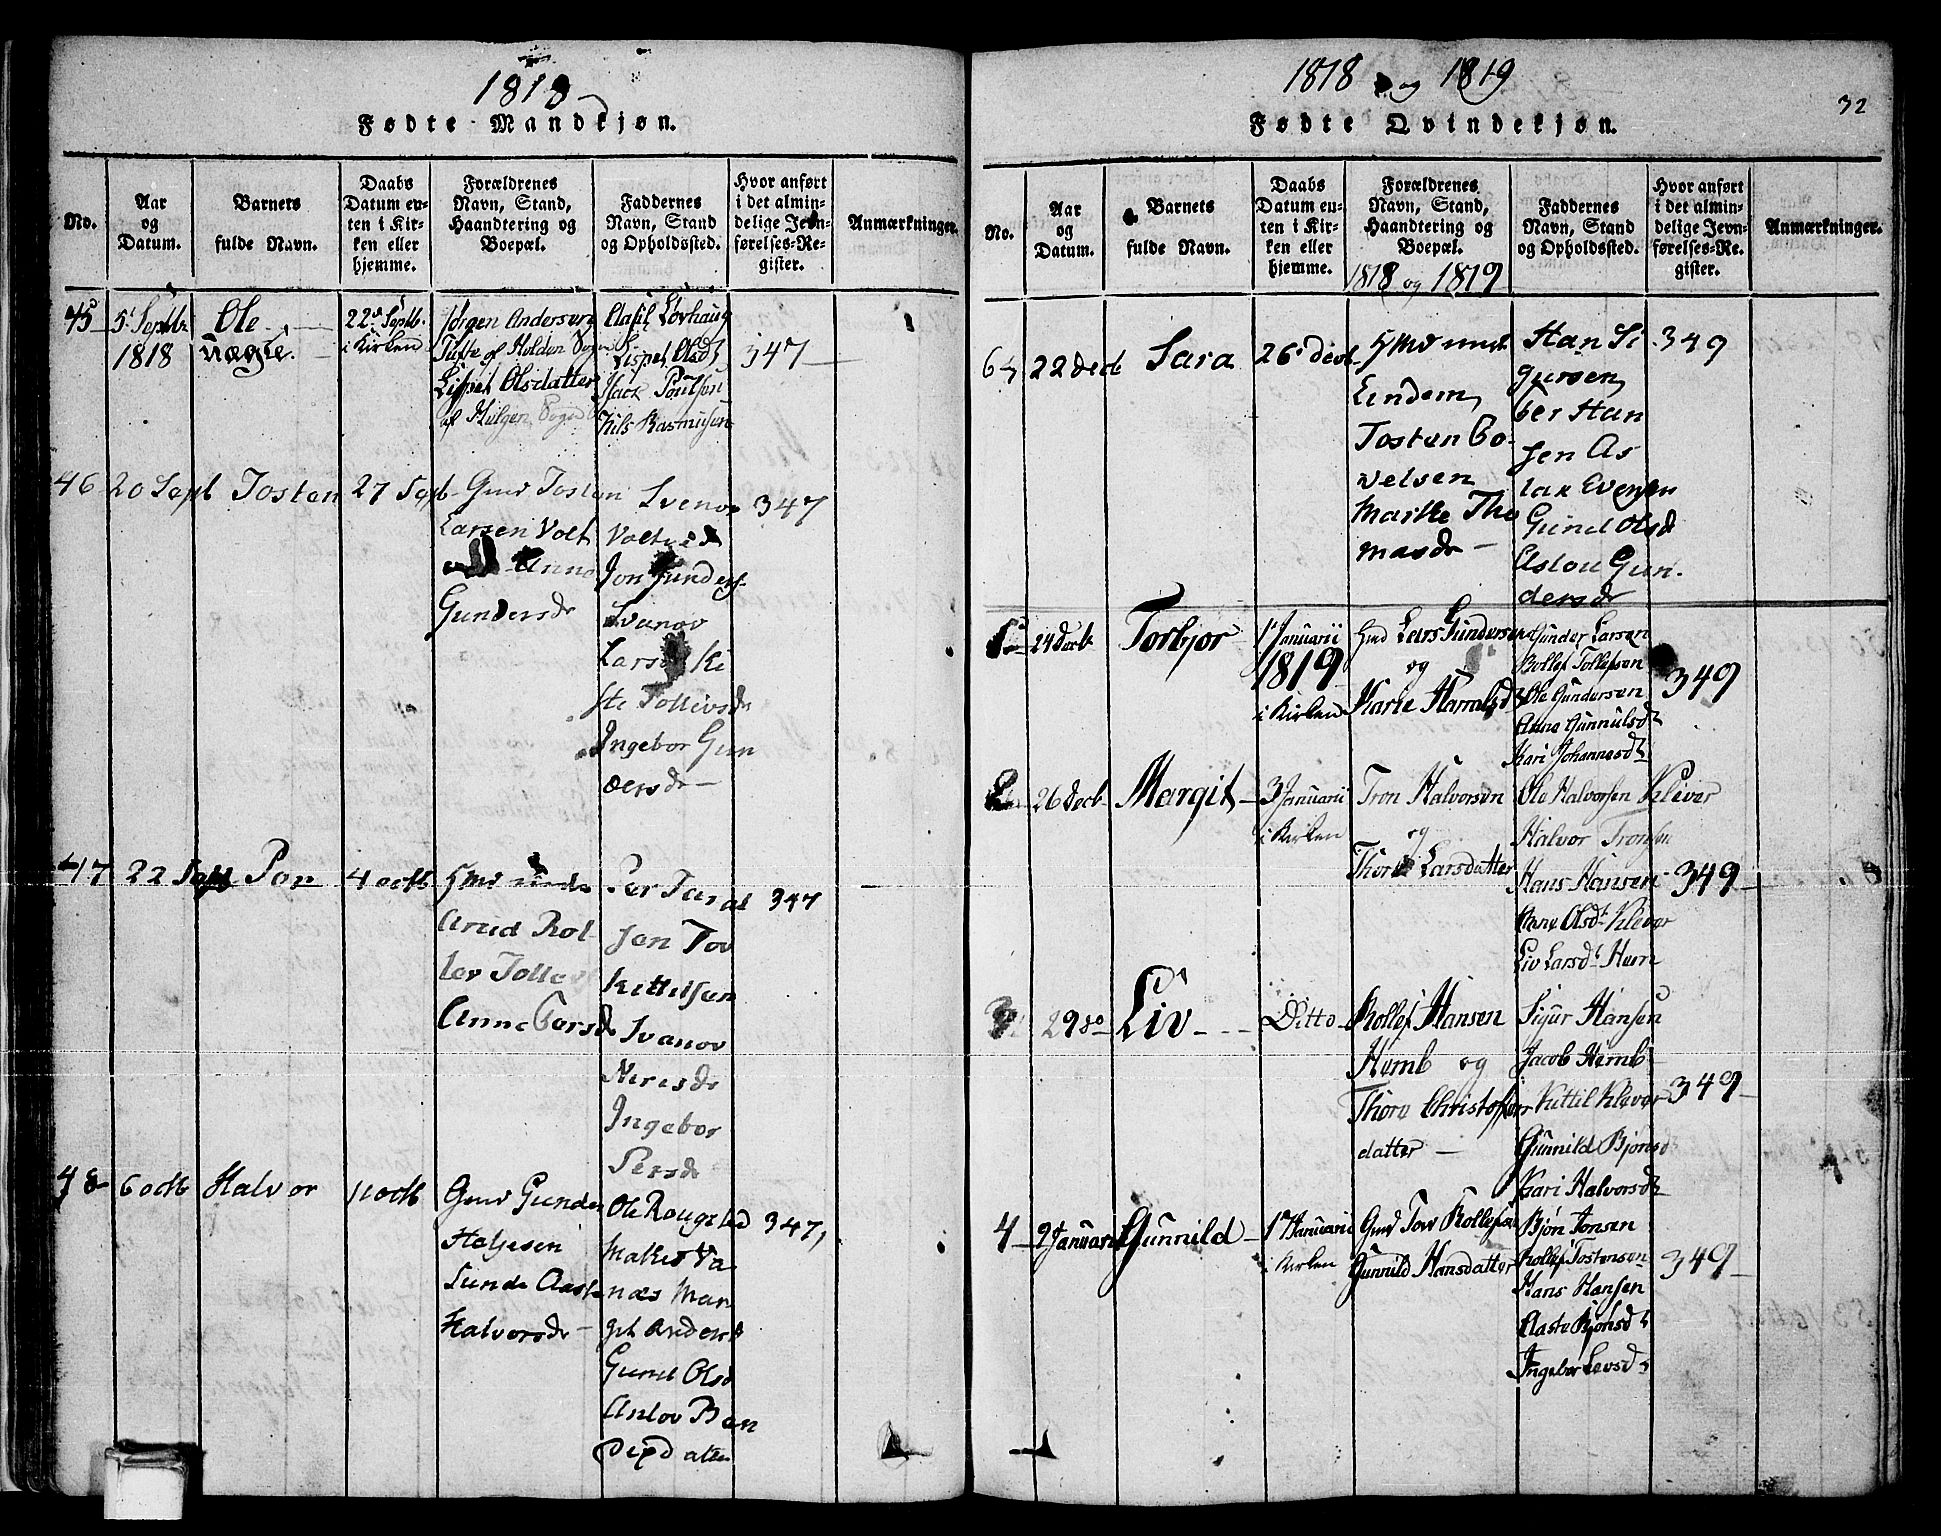 1818
Fødte Mandkjøn.
No.
Aar
og
Datum.
Barnets
fulde Navn.
Daabs
Datum en-
ten i Kir-
ken eller
hjemme.
Forældrenes
Navn, Stand,
Haandtering og
Boepæl.
Faddernes
Navn, Stand
og Opholdssted.
Hvor anført
i det almin-
delige Jevn-
førelses-Re-
gister.
Anmærkninger.
45
5 Septbr
1818
Ole
uægte.
22 Septb.
i Kirken
Jørgen Andersen
Tufte af Holden Sogn
Lispet Olsdatter
Aasil Lovhaug
Lispet Olsd
Isack Poulsen
Nils Rasmusen
347
46
20 Sept
Tosten
27 Sept
Gmd Tosten
Larsen Volt
Anne
Gundersdr
Svenov
Jon Gunders
Svanov
Lars Ki
ste Tollevsdr
Ingebor Gun
dersdr
347
47
22 Sept
Per
4 octb
Rol-
lev Tollev
Anne Persd
Per Taral
sen Tov
Kettelsen
Svanov
Ingebor
Persdr
347
48
6 octb
Halvor
11 octb
Gmd Gunder
Halvorsdr
Ole Rougstad
Mar
git Andersd
Gunel Olsd
datter
347
1818 og 1819
32
Fødte Qvindekjøn.
No.
Aar
og
Datum.
Barnets
fulde Navn.
Daabs
Datum en-
ten i Kir-
ken eller
hjemme.
Forældrenes
Navn, Stand,
Haandtering og
Boepæl.
Faddernes
Navn, Stand
og Opholdssted.
Hvor anført
i det almin-
delige Jevn-
førelses-Re-
gister.
Anmærkninger.
1818 og 1819
22 decb
Sara
26 decb
Eindem
Tosten Bo-
velsen
Marthe Tho
masdr
Han Si
gursen
Per Han
sen As
lak Evensen
Gunel Olsd
Aslou Gun-
dersdr
349
24 Decb
Torbjor
1 Januarii
1819
i Kirken
Gmd Lars Gundersen
og
Gunder Larsen
Rollef Tollefsen
Ole Gundersen
Anne Gunnulsdt
Kari Johannesdt
349
2
26 Decb
Margit
3 Januarii
i Kirken
Tron Halvorsen
og
Thore Larsdatter
Ole Halvorsen Klever
Halvor Tronsen
Hans Hansen
Anne Olsdt Klever
Liv Larsdt Hem
349
3
29 do
Liv
Ditto
Rollef Hansen
Hemb og
Thore Christoffer
datter
Sigur Hansen
Jacob Hemb
Kittil Klever
Gunnild Bjonsd
Kari Halvorsdt
349
4
9 Januarii
Gunnild
17 Januarii
i Kirken
Gmd Tov Rollefsen
Gunnild Hansdatter
Bjøn Jonsen
Rollef Tostensen
Hans Hansen
Aaste Bjønsdt
Ingebor Levsdt
349